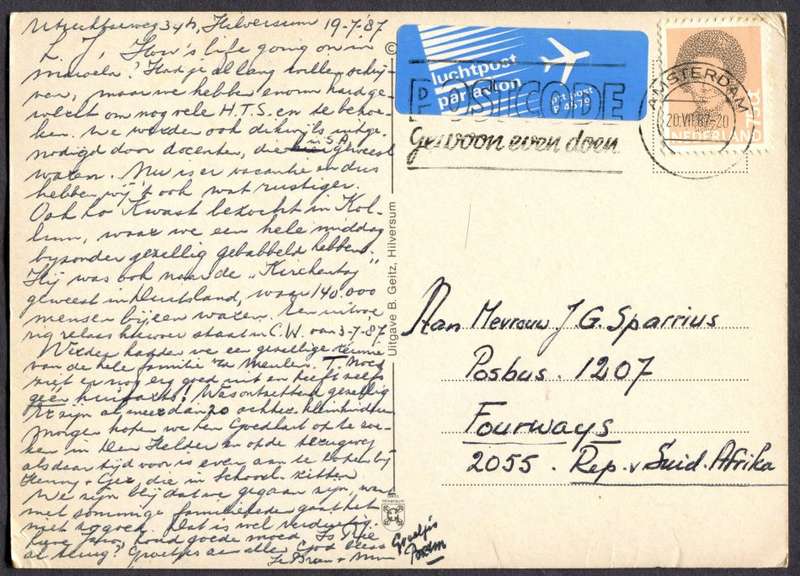 Utrechtseweg 34h, Hilversum 19-7-'87
L. J, How's life going on in
? Had je al lang willen schrij
ven, maar we hebben enorm hard ge
werkt om nog vele H.T.S. en te bezoe-
ken. We werden ook uitge-
nodigd door docenten, die in S.A. geweest
waren. Nu is er vacantie en dus
hebben wij 't ook wat rustiger.
Ook Co Kwast bezocht in Kol-
lum, waar we een hele middag
byzonder gezellig gebabbeld hebben.
Hij was ook naar de "Kirchentag"
geweest in Duitsland, waar 140.000
mensen bijeen waren. Een uitvoe
rig relaas hierover staat in C.W. van 3-7-'87.
Verder hadden we een gezellige reünie
van de hele familie te Meulen. T. Moes
ziet er nog erg goed uit en heeft zelfs
geen Was ontzettend gezellig
Er zijn al meer dan 20 achter kleinkinderen
Morgen hopen we ten Goedhart op te zoe-
ken in Den Helder en op de terugweg
als daar tijd voor is even aan te bij
Henny + Ger, die in Schoorl zitten
We zijn blij dat we gegaan zijn, want
met sommige familieleden gaat het
niet zo goed. Dat is wel verdrietig.
Lieve Jano, houd goede moed. Is
al terug? Groetjes aan allen God bless
Le Bram + Ann
Groetjes
Bram
Uitgave B. Geitz, Hilversum
©
luchtpost
par avion
ptt post
P 4579
POSTCODE
Gewoon even doen
AMSTERDAM
20.VII.87-20
NEDERLAND
75c
Aan Mevrouw J G. Sparrius
Posbus. 1207
Fourways
2055. Rep. v Suid. Afrika